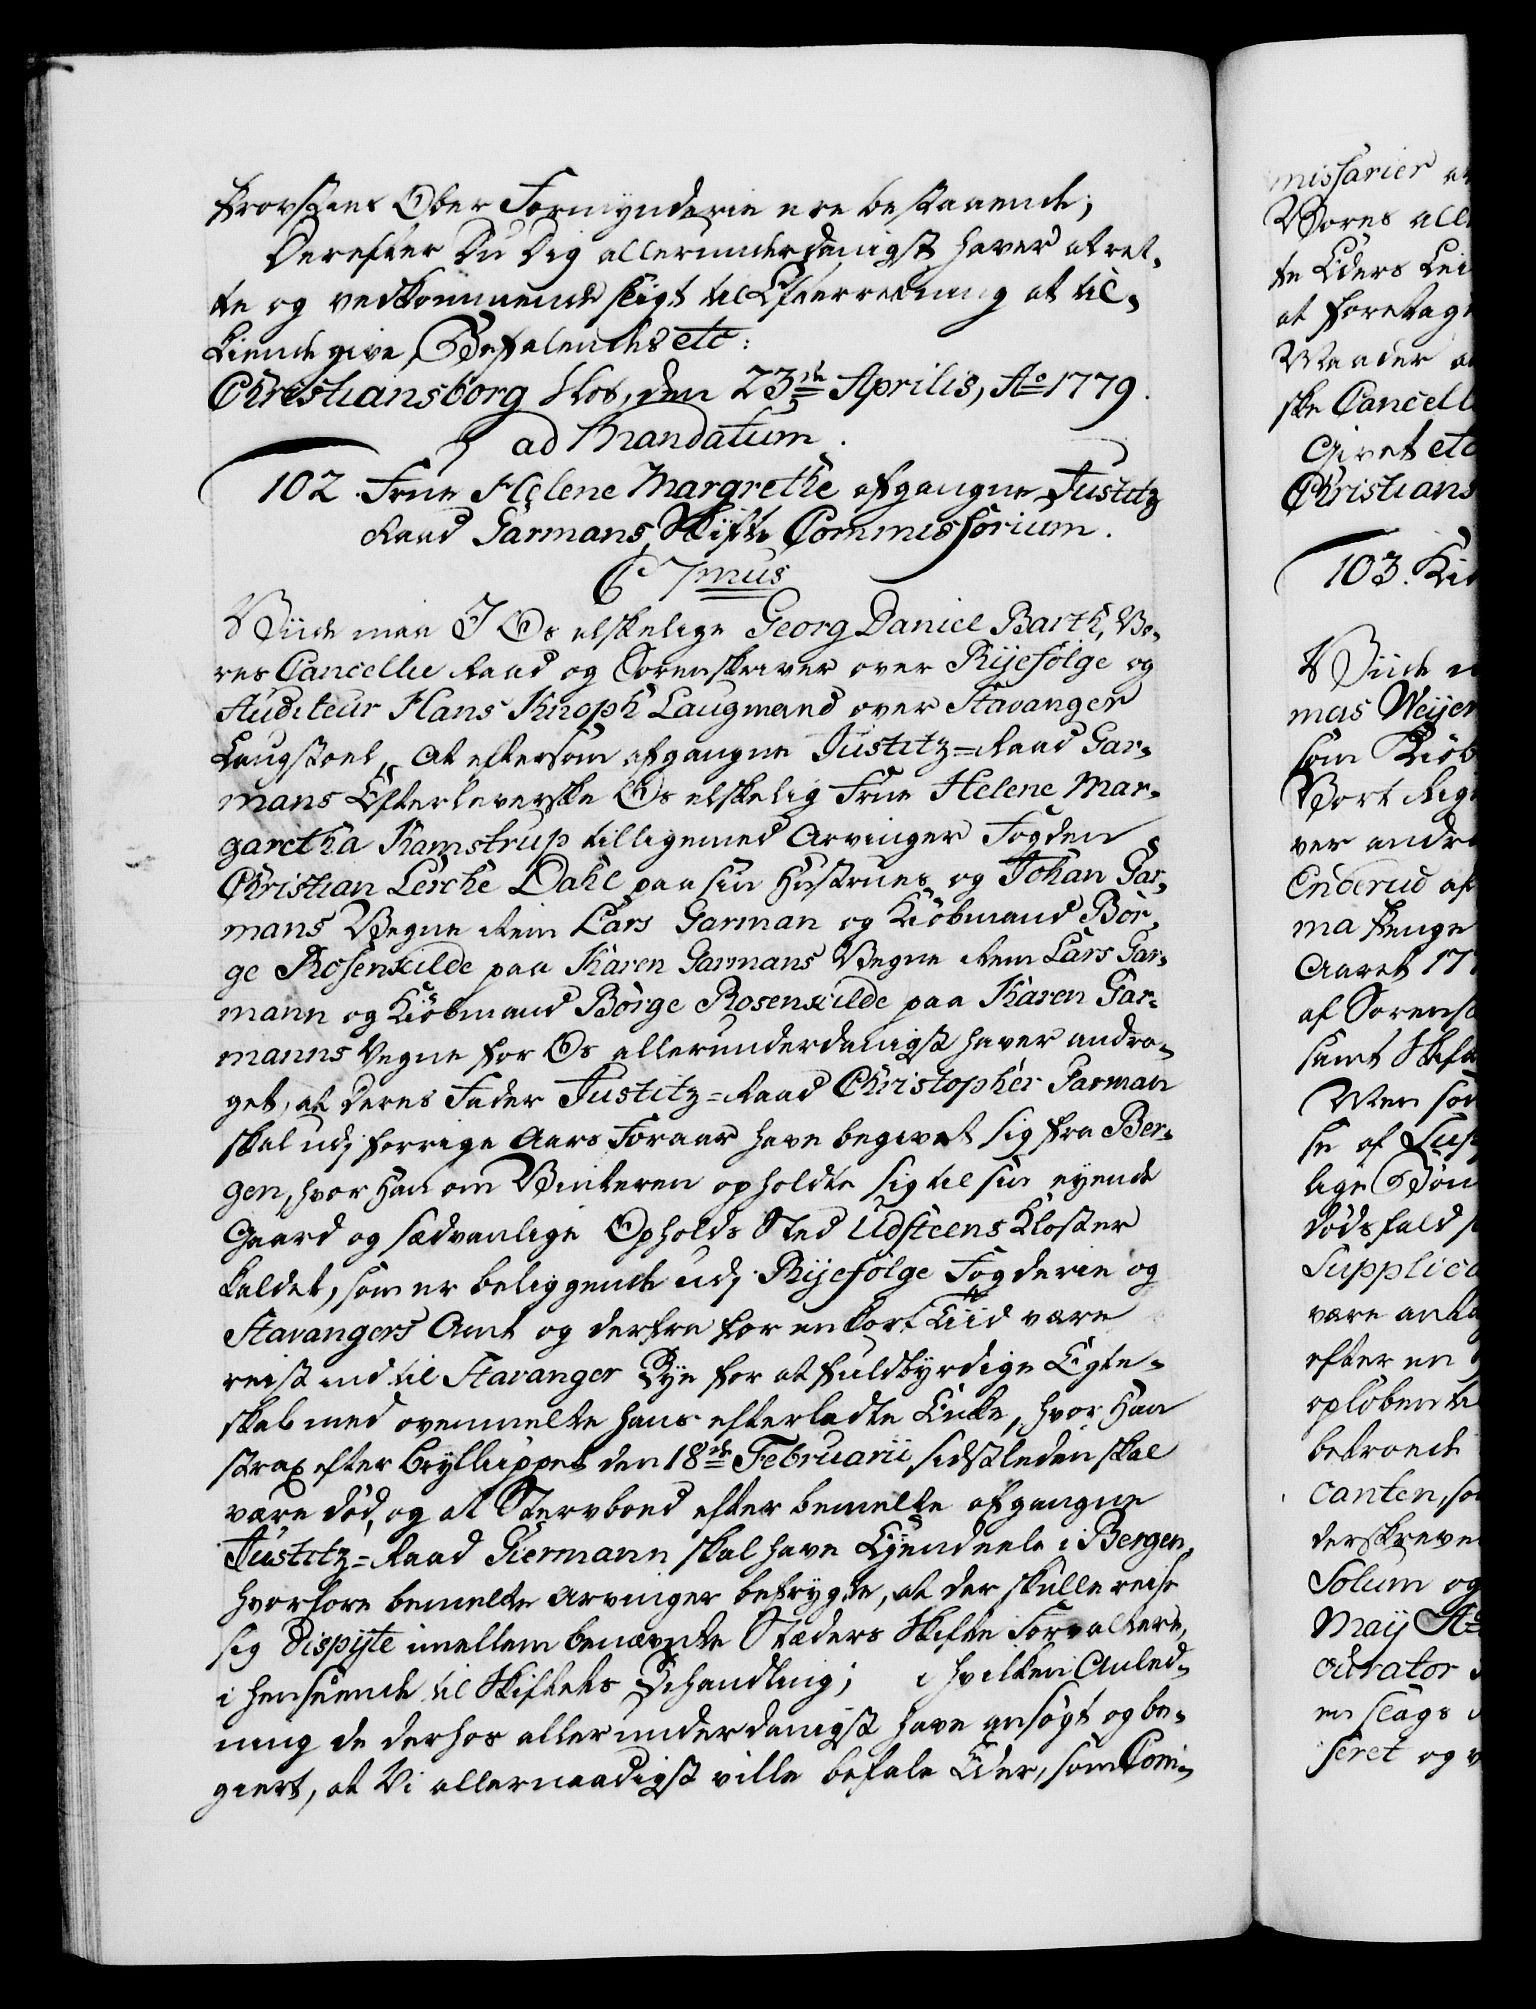 Provstens Ober Formynderie ere bestaaende;
Derefter Du Dig allerunderdanigst haver at ret-
te og vedkommende sligt til Efterretning at til-
kiende give, Befalendes etc:
Christiansborg Slot, den 23de Aprilis, Ao 1779.
ad Mandatum.
102. Frue Helene Margrethe afgangne Justitz
Raad Garmans, Skifte Commissorium.
C 7mus
Viide maa I Os elskelige Georg Daniel Barth, Vo-
res Cancellie Raad og Sorenskriver over Rijefølge og
Auditeur Hans Knoph Laugmand over Stavanger
Laugstoel, At eftersom afgangne Justitz-Raad Gar-
mans Efterleverske Os elskelig Frue Helene Mar-
garetha Kamstrup tilligemed Arvinger Fogden
Christian Lerche Dahl paa sin Hustrues og Johan Gar-
mans Vegne Rein Lars Garman og Kiøbmand Bør-
ge Rosenkilde paa Karen Garmans Vegne Rem Lars Gar-
mann og Kiøbmand Børge Rosenkilde paa Karen Gar-
manns Vegne for Os allerunderdanigst haver andra-
get, at deres Fader Justitz-Raad Christopher Garman
skal udj forrige Aars Foraar have begivet sig fra Ber-
gen, hvor Han om Vinteren opholdte sig til sin eyende
Gaard og sædvanlige Opholds Sted Udsteens Kloster
kaldet, som er beliggende udj Rijefølge Fogderie og
Stavangers Amt og derfra for en kort Tiid være
reist ind til Stavanger Bye for at fuldbyrdige Egte-
skab med ovenmelte hans efterladte Enke, hvor Han
strax efter Bryllуppet den 18de Februarii sidstleden skal
være død, og at Stervboed efter bemelte afgangne
Justitz-Raad Giermann skal have Eyendeele i Bergen,
hvorfore bemelte Arvinger befrygte, at der skulle reise
sig dispute imellem benævnte Stæders Skifte Forvaltere,
i henseende til Skiftets Behandling; i hvilken Anled-
ning de derhos allerunderdanigst have ansøgt og be-
giert, at Vi allernaadigst ville befale Eder, som Com-
missarier at
Vores alle
te Eders Lei
at foretage
Maader at
ske Cancell
Givet etc
Christians
103. Ki
Viide m
mas Weijer
som Kiøb
Vort Rig
ver andra
Enberud af
ma Penge
Aaret 17
af Sorensk
samt Skif
Men som
se af Sup
lige Bøn
Dødsfald
Supplica
være anta
efter en
opløbente
betroede
canten, so
derskreve
Solum og
Maij Ao
curator
en slags
seret og v